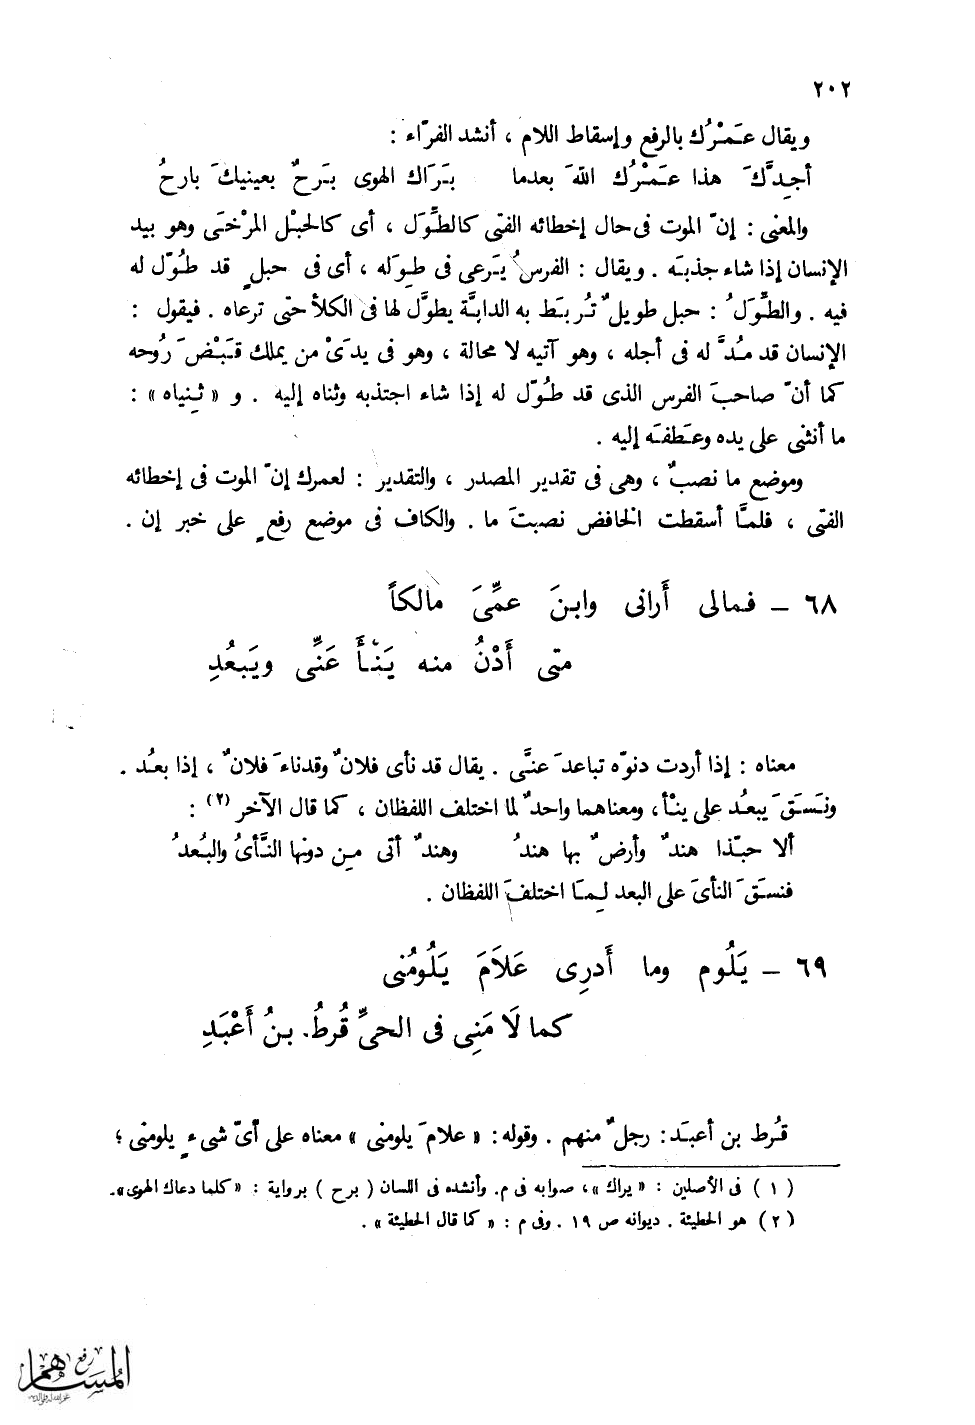 ٢٠٢
ويقال عَمْرُك بالرفع وإسقاط اللام ، أنشد الفرّاء :
أجِدَّكَ هذا عَمْرُك اللهَ بعدما بَرَاك الهوى بَرحٌ بعينيكَ بارحُ
والمعنى : إنّ الموت فى حال إخطائه الفتى كالطِّوَل ، أى كالحبْل المرْخَى وهو بيد
الإنسان إذا شاء جذبَه . ويقال : الفرسُ يَرعى فى طِوَله ، أى فى حبلٍ قد طُوّل له
فيه . والطِّوَلُ : حبل طويلٌ تُربَط به الدابَّة يطوَّل لها فى الكلأ حتى ترعاه . فيقول :
الإنسان قد مُدَّ له فى أجله ، وهو آتيه لا محالة ، وهو فى يدَىْ من يملك قَبْضَ رُوحه
كما أنّ صاحبَ الفرس الذى قد طُوّل له إذا شاء اجتذبه وثناه إليه . و « ثنياه » :
ما أنثنى على يده وعَطفَه إليه .
وموضع ما نصبٌ ، وهى فى تقدير المصدر ، والتقدير : لعمرك إنّ الموت فى إخطائه
الفتى ، فلمَّا أسقطت الخافض نصبتَ ما . والكاف فى موضع رفعٍ على خبر إن .
٦٨ – فمالى أَرانى وابنَ عمِّىَ مالكاً
متى أَدْنُ منه يَنْأَ عَنِّى ويَبعُدِ
معناه : إذا أردت دنوّه تباعدَ عنَّى . يقال قد نأى فلانٌ وقدناءَ فلانٌ ، إذا بعُد .
ونَسَقَ يبعُد على ينْأ ، ومعناهما واحدٌ لما اختلف اللفظان ، كما قال الآخر (٢) :
ألا حبّذا هندٌ وأرضٌ بها هندُ وهندٌ أتى مِن دونها النَّأىُ والبُعدُ
فنسَقَ النأىَ على البعد لِمَا اختلفَ اللفظان .
٦٩ – يَلُوم وما أَدرِى عَلاَمَ يَلُومُنى
كما لَا مَنِى فى الحىِّ قُرطُ. بنُ أَعْبَدِ
قُرط بن أعبَد : رجلٌ منهم . وقوله : « علامَ يلومنى » معناه على أىّ شىءٍ يلومنى ؛
( ١ ) فى الأصلين : « يراك » ، صوابه فى م. وأنشده فى اللسان ( برح ) برواية : « كلما دعاك الهوى ».
( ٢ ) هو الحطيئة . ديوانه ص ١٩ . وفى م : « كما قال الحطيئة » .